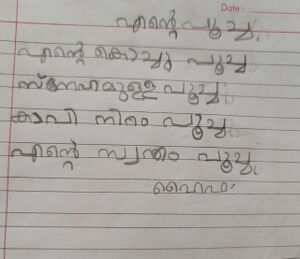 Date :
എന്റെ പൂച്ച.
എന്റെ കൊച്ചു പൂച്ച
സ്നേഹമുള്ള പൂച്ച
കാവി നിറം പൂച്ച
എന്റെ സ്വന്തം പൂച്ച.